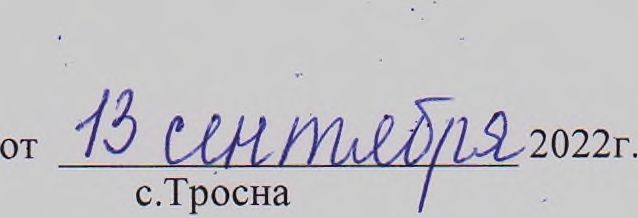 от 13 сентября 2022г.
с.Тросна